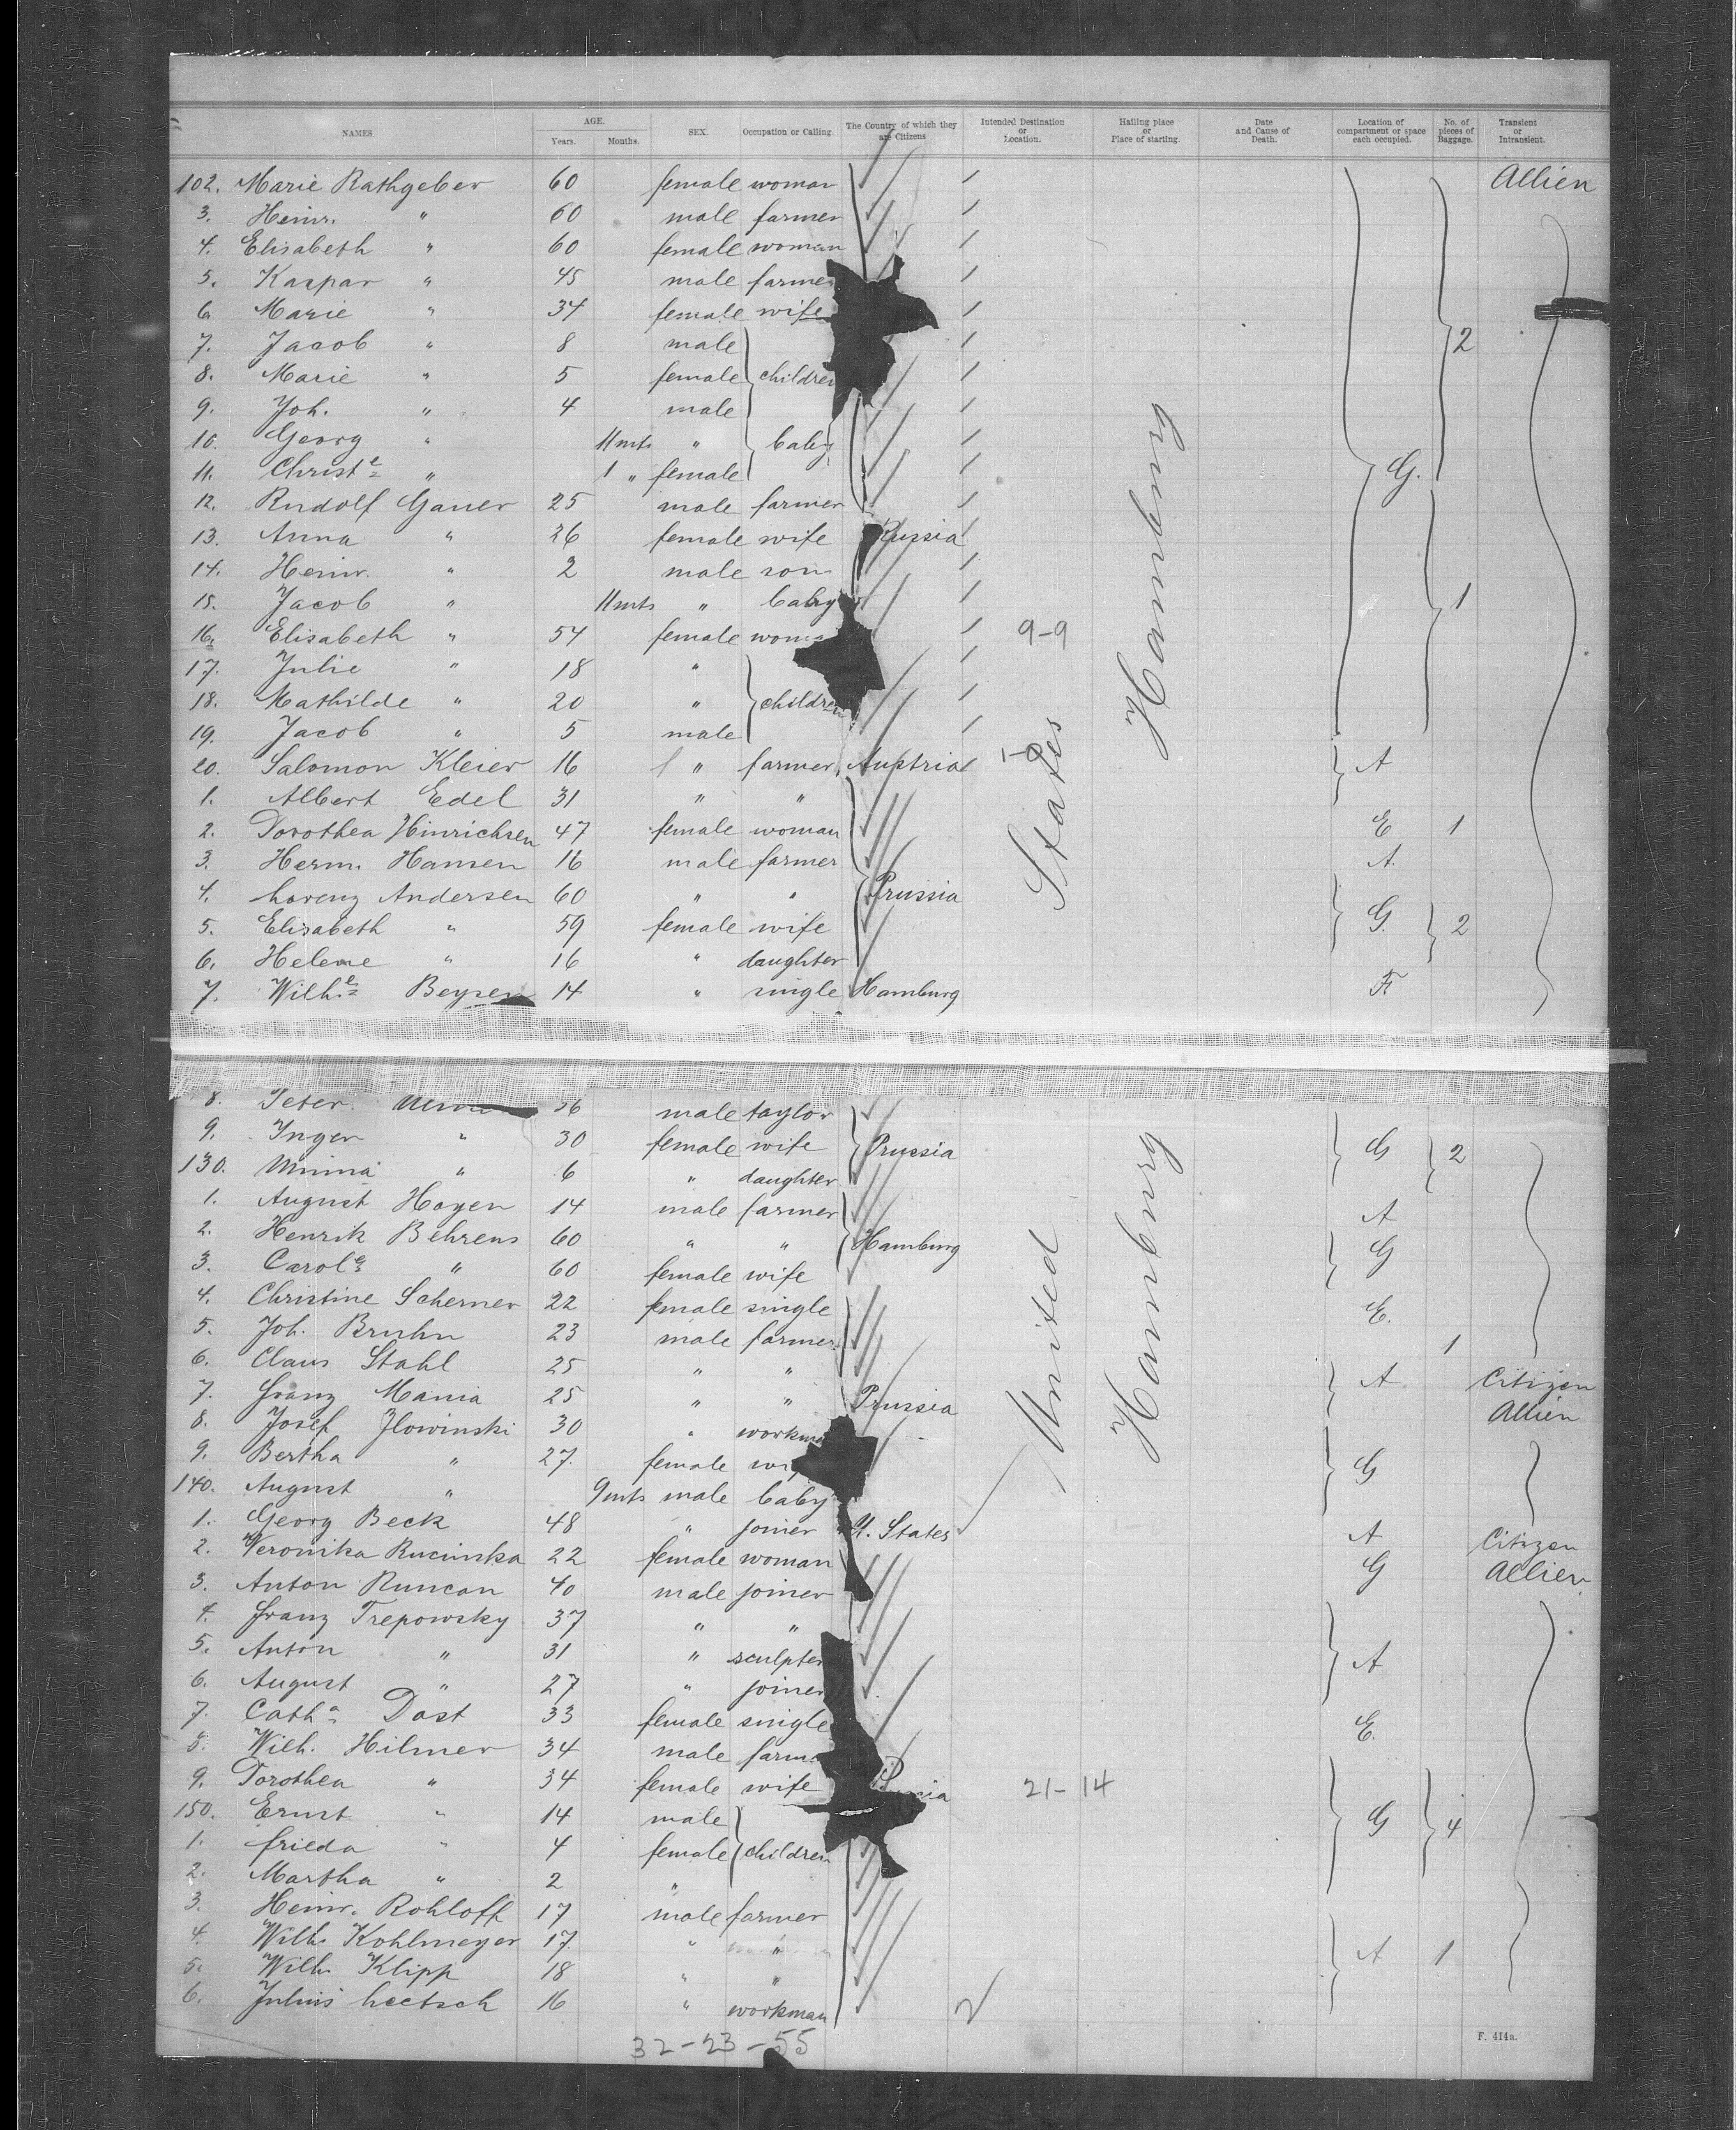 NAMES AGE. Years. Months. SEX. Occupation or Calling. The Country of which they are Citizens Intended Destination or Location. Hailing place or Place of starting. Date and Cause of Death. Location of compartment or space each occupied. No. of pieces of Baggage. Transient or Intransient.
102. Marie Rathgeber 60 female woman Allien
3. Heinr. " 60 male farmer
4. Elisabeth " 60 female woman
5. Kaspar " 45 male farmer
6. Marie " 34 female wife
7. Jacob " 8 male 2
8. Marie " 5 female children
9. Joh. " 4 male
10. Georg " 11 mts " baby
11. Christe " 1 " female G.
12. Rudolf Gauer 25 male farmer
13. Anna " 26 female wife Russia
14. Heinr. " 2 male son
15. Jacob " 11 mts " baby 1
16. Elisabeth " 54 female 9-9
17. Julie " 18 "
18. Mathilde " 20 " children
19. Jacob " 5 male
20. Salomon Kleier 16 " farmer Austria 1-0 A
1. Albert Edel 31 " "
2. Dorothea Hinrichsen 47 female woman E 1
3. Herm. Hansen 16 male farmer A.
4. Lorenz Andersen 60 " " Prussia
5. Elisabeth " 59 female wife G. 2
6. Helene " 16 " daughter
7. Wilhe Beysen 14 " single Hamburg F
States Hamburg
8. Peter 36 male taylor
9. Inger " 30 female wife Prussia G 2
130. Minna " 6 " daughter
1. August Hoyen 14 male farmer A
2. Henrik Behrens 60 " " Hamburg G
3. Carole " 60 female wife
4. Christine Scherner 22 female single E.
5. Joh. Bruhn 23 male farmer 1
6. Claus Stahl 25 " " A Citizen
7. Franz Mania 25 " " Prussia Allien
8. Josef Jlowinski 30 "
9. Bertha " 27. female G
140. August " 9 mts male baby
1. Georg Beck 48 " joiner U. States A Citizen
2. Veronika Rucinska 22 female woman G Allien
3. Anton Runcan 40 male joiner
4. Franz Trepowsky 37 " "
5. Anton " 31 " sculpter A
6. August " 27 " joiner
7. Catha Dost 33 female single E.
8. Wilh. Hilmer 34 male
9. Dorothea " 34 female wife 21-14
150. Ernst " 14 male G 4
1. Frieda " 4 female children
2. Martha " 2 "
3. Heinr. Rohloff 17 male farmer
4. Wilh. Kohlmeyer 17 " " A 1
5. Wilh. Klipp 18 " "
6. Julius Leetsch 16 " workman
United Hamburg
32-23-55
F. 414a.